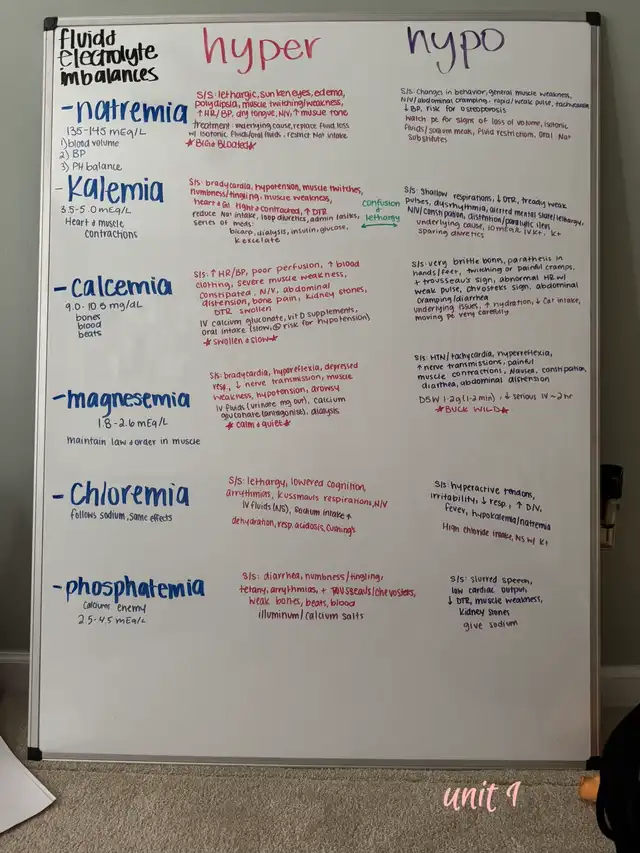 fluid &
electrolyte
imbalances
hyper
hypo
-natremia
135-145 mEq/L
1) blood volume
2) BP
3) PH balance
S/S: lethargic, sunken eyes, edema,
polydipsia, muscle twitching/weakness,
↑ HR/BP, dry tongue, N/V, ↑ muscle tone
Treatment: underlying cause, replace fluid loss
w/ isotonic fluids/oral fluids, restrict Na+ intake
*Big & Bloated*
S/S: Changes in behavior, general muscle weakness,
N/V/abdominal cramping, rapid/weak pulse, tachycardia
↓ BP, risk for osteoporosis
watch pt for signs of loss of volume, isotonic
fluids/sodium meals, fluid restriction, Oral Na+
Substitutes
-Kalemia
3.5-5.0 mEq/L
Heart & muscle
contractions
S/S: bradycardia, hypotension, muscle twitches,
numbness/tingling, muscle weakness,
heart & GI tight & contracted, ↑ DTR
reduce intake, loop diuretics,
series of meds:
bicarb, dialysis, insulin, glucose,
kexelate
confusion
&
lethargy
S/S: shallow respirations, ↓ DTR, thready weak
pulses, dysrhythmia, altered mental state/lethargy,
N/V/constipation, distention/paralytic ileus
underlying cause, 10 mEq IV K+, K+
sparing diuretics
-Calcemia
9.0-10.5 mg/dL
bones
blood
beats
S/S: ↑ HR/BP, poor perfusion, ↑ blood
clotting, severe muscle weakness,
constipated, N/V, abdominal
distension, bone pain, kidney stones,
DTR swollen
IV calcium gluconate, vit D supplements,
oral intake (slow, risk for hypotension)
*swollen & slow*
S/S: very brittle bonn, parathesis in
hands/feet, twitching or painful cramps,
+ trousseau's sign, abnormal HR w/
weak pulse, chvosteks sign, abdominal
cramping/diarrhea
underlying issues, ↑ hydration, ↓ Cat intake,
moving pt very carefully
-magnesemia
1.8-2.6 mEq/L
Maintain law & order in muscle
S/S: bradycardia, hyporeflexia, depressed
resp, ↓ nerve transmission, muscle
weakness, hypotension, drowsy
IV fluids (urinate mg out), calcium
gluconate (antagonist), dialysis
*calm & quiet*
S/S: HTN/tachycardia, hyperreflexia,
↑ nerve transmissions, painful
muscle contractions, Nausea, constipation,
diarrhea, abdominal distension
D5W 1-2g (1-2 min), ↓ serious IV ~2 hr
*BUCK WILD*
-Chloremia
follows sodium, same effects
S/S: lethargy, lowered cognition,
arrythmias, kussmauls respirations, N/V
IV fluids (NS), sodium intake ↑
dehydration, resp. acidosis, cushing's
S/S: hyperactive tendons,
irritability, ↓ resp, ↑ D/V,
fever, hypokalemia/natremia
High chloride intake, NS w/ K+
-phosphatemia
calciums enemy
2.5-4.5 mEq/L
S/S: diarrhea, numbness/tingling,
tetany, arrythmias, + trousseaus/chevosters,
weak bones, beats, blood
illuminum/calcium salts
S/S: slurred speech,
low cardiac output,
↓ DTR, muscle weakness,
kidney stones
give sodium
unit 9